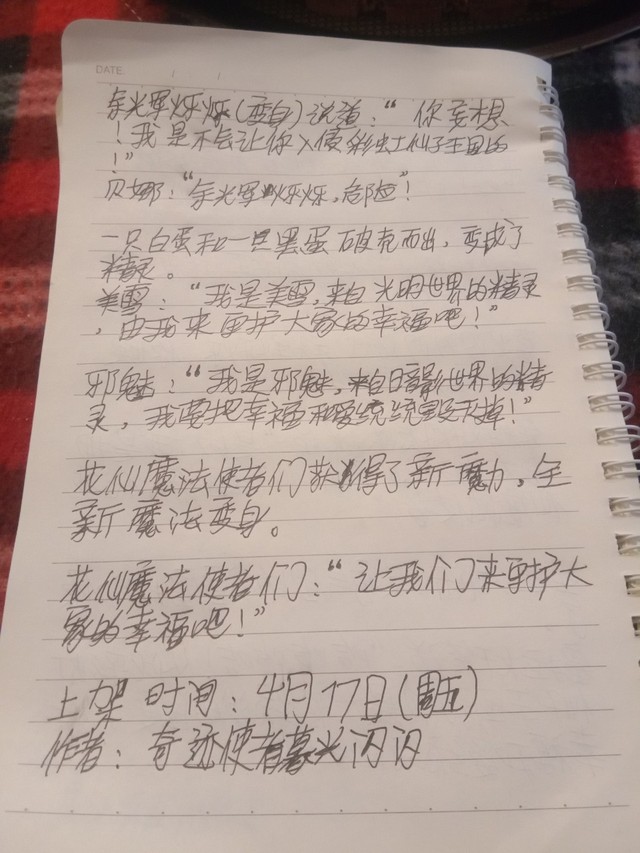 DATE / /
余光军烁烁(变身)说道：“你妄想
！我是不会让你入侵彩虹仙子王国的
！”
贝娜：“余光军烁烁，危险”！
一只白蛋和一只黑蛋破壳而出，变成了
精灵。
美雪：“我是美雪，来自光明世界的精灵
，由我来守护大家的幸福吧！”
邪魅：“我是邪魅，来自暗影世界的精
灵，我要把幸福和爱统统毁灭掉！”
花仙魔法使者们获得了新魔力，全
新魔法变身。
花仙魔法使者们：“让我们来守护大
家的幸福吧！”
上架时间：4月17日(周五)
作者：奇迹使者暮光闪闪